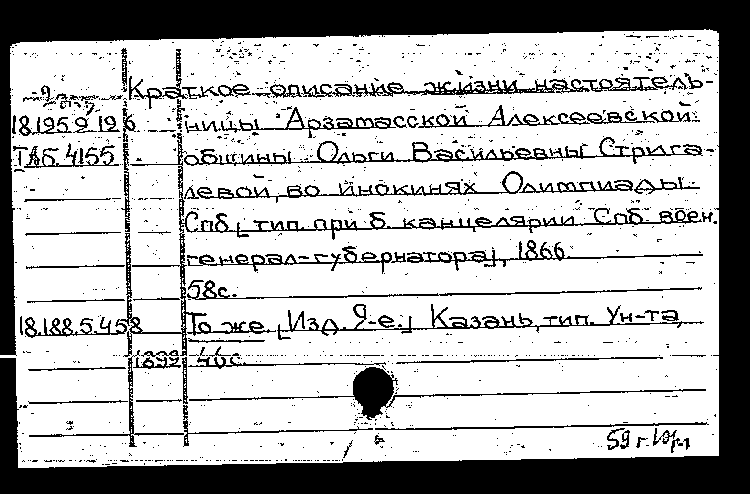 Краткое описание жизни настоятель-
18.195.9.126 ницы Арзамасской Алексеевской
ТАБ.4155 общины Ольги Васильевны Стрига-
левой, во инокинях Олимпиады.
Спб., [тип. при б. канцелярии Спб. воен.
генерал-губернатора], 1866.
58с.
18.188.5.458 То же. [Изд. 9-е.] Казань, тип. Ун-та,
1899. 46с.
59 г.